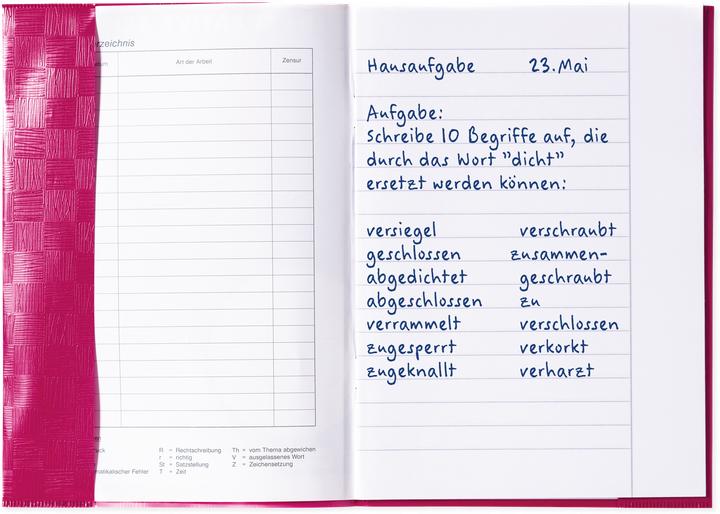 rzeichnis
atum Art der Arbeit Zensur
R = Rechtschreibung Th = vom Thema abgewichen
r = richtig V = ausgelassenes Wort
St = Satzstellung Z = Zeichensetzung
matikalischer Fehler T = Zeit
Hausaufgabe 23. Mai
Aufgabe:
Schreibe 10 Begriffe auf, die
durch das Wort "dicht"
ersetzt werden können:
versiegel verschraubt
geschlossen zusammen-
abgedichtet geschraubt
abgeschlossen zu
verrammelt verschlossen
zugesperrt verkorkt
zugeknallt verharzt